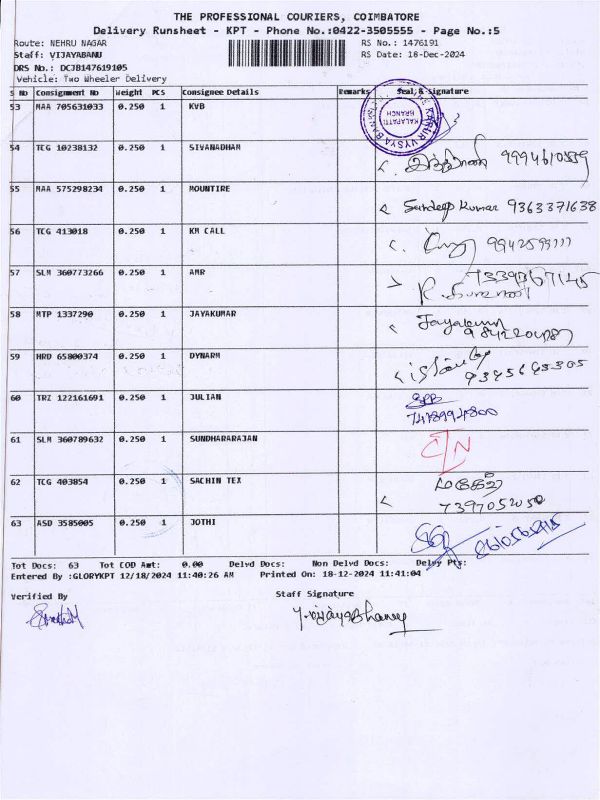 THE PROFESSIONAL COURIERS, COIMBATORE
Delivery Runsheet - KPT - Phone No.:0422-3505555 - Page No.:5
Route: NEHRU NAGAR RS No.: 1476191
Staff: VIJAYABANU RS Date: 18-Dec-2024
DRS No.: DCJB147619105
Vehicle: Two Wheeler Delivery
S No Consignment No Weight PCS Consignee Details Remarks Seal & Signature
53 MAA 705631033 0.250 1 KVB THE KARUR VYSYA BANK KALAPATTI BRANCH
54 TCG 10238132 0.250 1 SIVANADHAM
55 MAA 575298234 0.250 1 MOUNTIRE Sandeep Kumar 9363371638
56 TCG 413018 0.250 1 KM CALL
57 SLM 360773266 0.250 1 AMR
58 MTP 1337290 0.250 1 JAYAKUMAR Jayakumar
59 HRD 65800374 0.250 1 DYNARM
60 TRZ 122161691 0.250 1 JULIAN
61 SLM 360789632 0.250 1 SUNDHARARAJAN
62 TCG 403854 0.250 1 SACHIN TEX
7397052050
63 ASD 3585005 0.250 1 JOTHI
Tot Docs: 63 Tot COD Amt: 0.00 Delvd Docs: Non Delvd Docs: Delvy Pts:
Entered By :GLORYKPT 12/18/2024 11:40:26 AM Printed On: 18-12-2024 11:41:04
Verified By Staff Signature